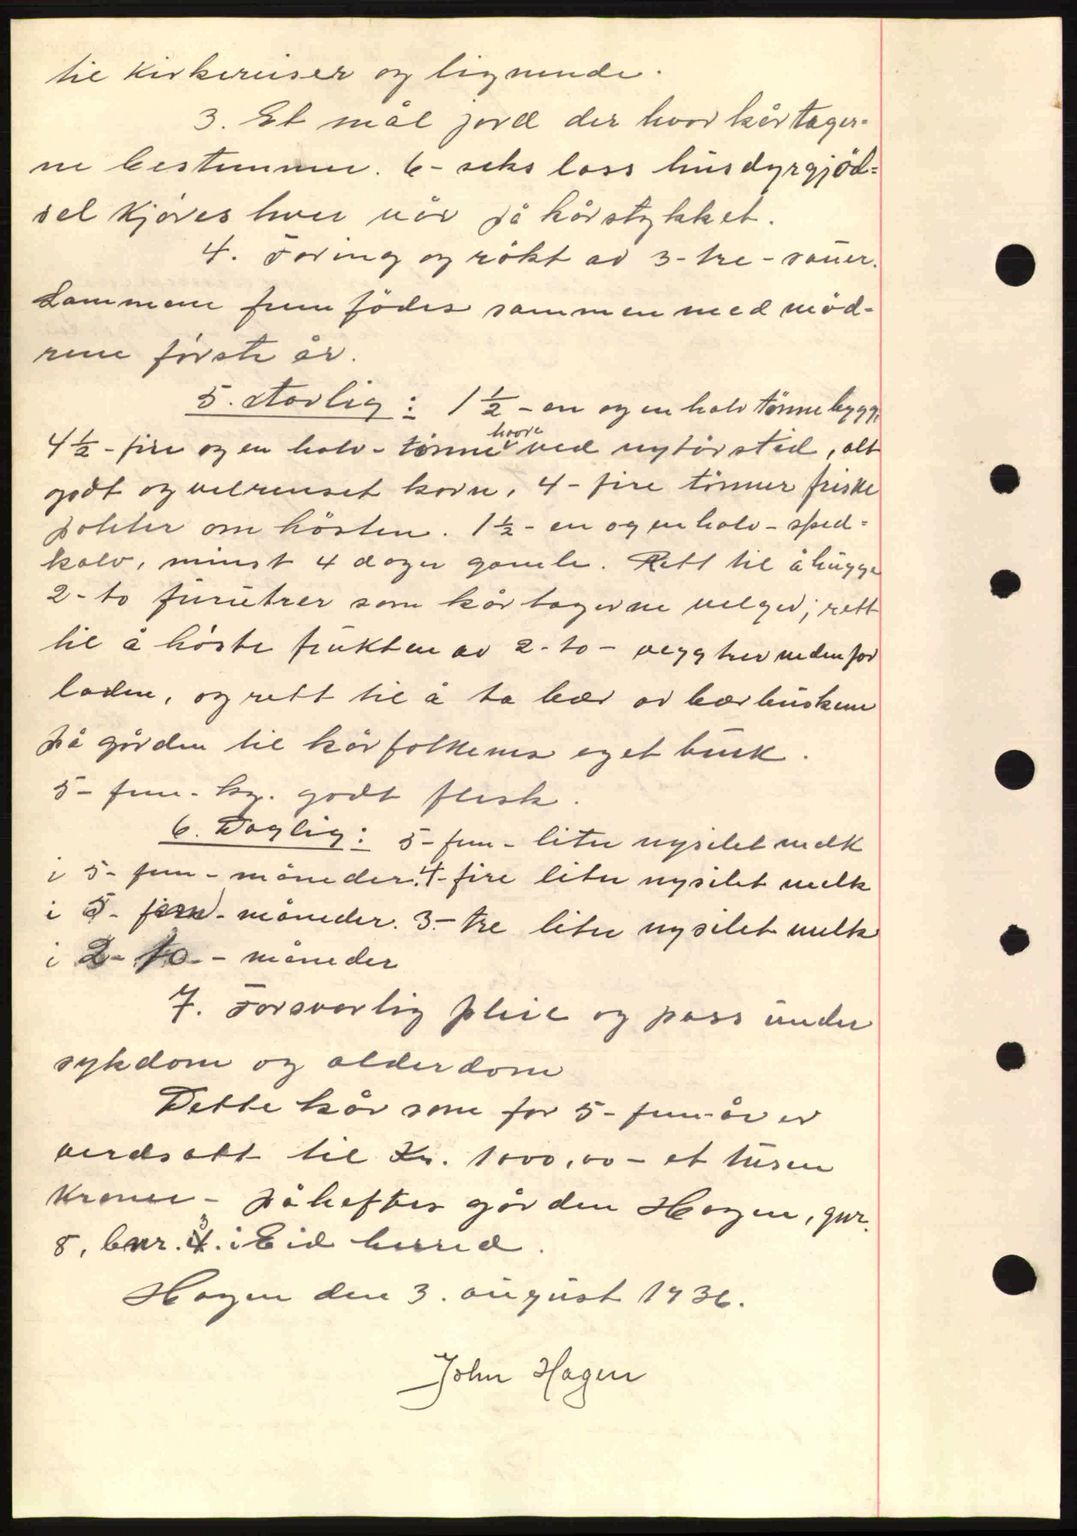 til kirkereiser og lignende.
3. Et mål jord der hvor kårtager-
ne bestemmer. 6- seks lass husdyrgjöd=
sel kjöres hver vår på kårstykket.
4. Foring og rökt av 3- tre - sauer.
Lammene fem födes sammen med möd-
rene förste år.
5. Aarlig: 1 1/2 - en og en halv tönne bygg,
4 1/2 - fire og en halv - tönne havre ved nyttårstid, alt
godt og velrenset korn, 4 - fire tönner friske
poteter om hösten. 1 1/2 - en og en halv - sped=
kalv, minst 4 dager gamle. Rett til å hugge
2 - to furutrær som kårtagerne velger; rett
til å höste frukten av 2 - to - veggtrer nedenfor
laden, og rett til å ta bær av bærbuskene
på gården til kårfolkenes eget bruk.
5 - fem - kg. godt flesk.
6. Daglig: 5 - fem - liter nysilet melk
i 5 - fem - måneder. 4 - fire liter nysilet melk
i 5 - fem - måneder. 3 - tre liter nysilet melk
i 2 - to - måneder
7. Forsvarlig pleie og pass under
sykdom og alderdom
Dette kår som for 5 - fem - år er
verdsatt til Kr. 1000,00 - et tusen
kroner - påheftes gården Hagen, gnr.
8, bnr. 3. i Eid herred.
Hagen den 3. august 1936.
John Hagen